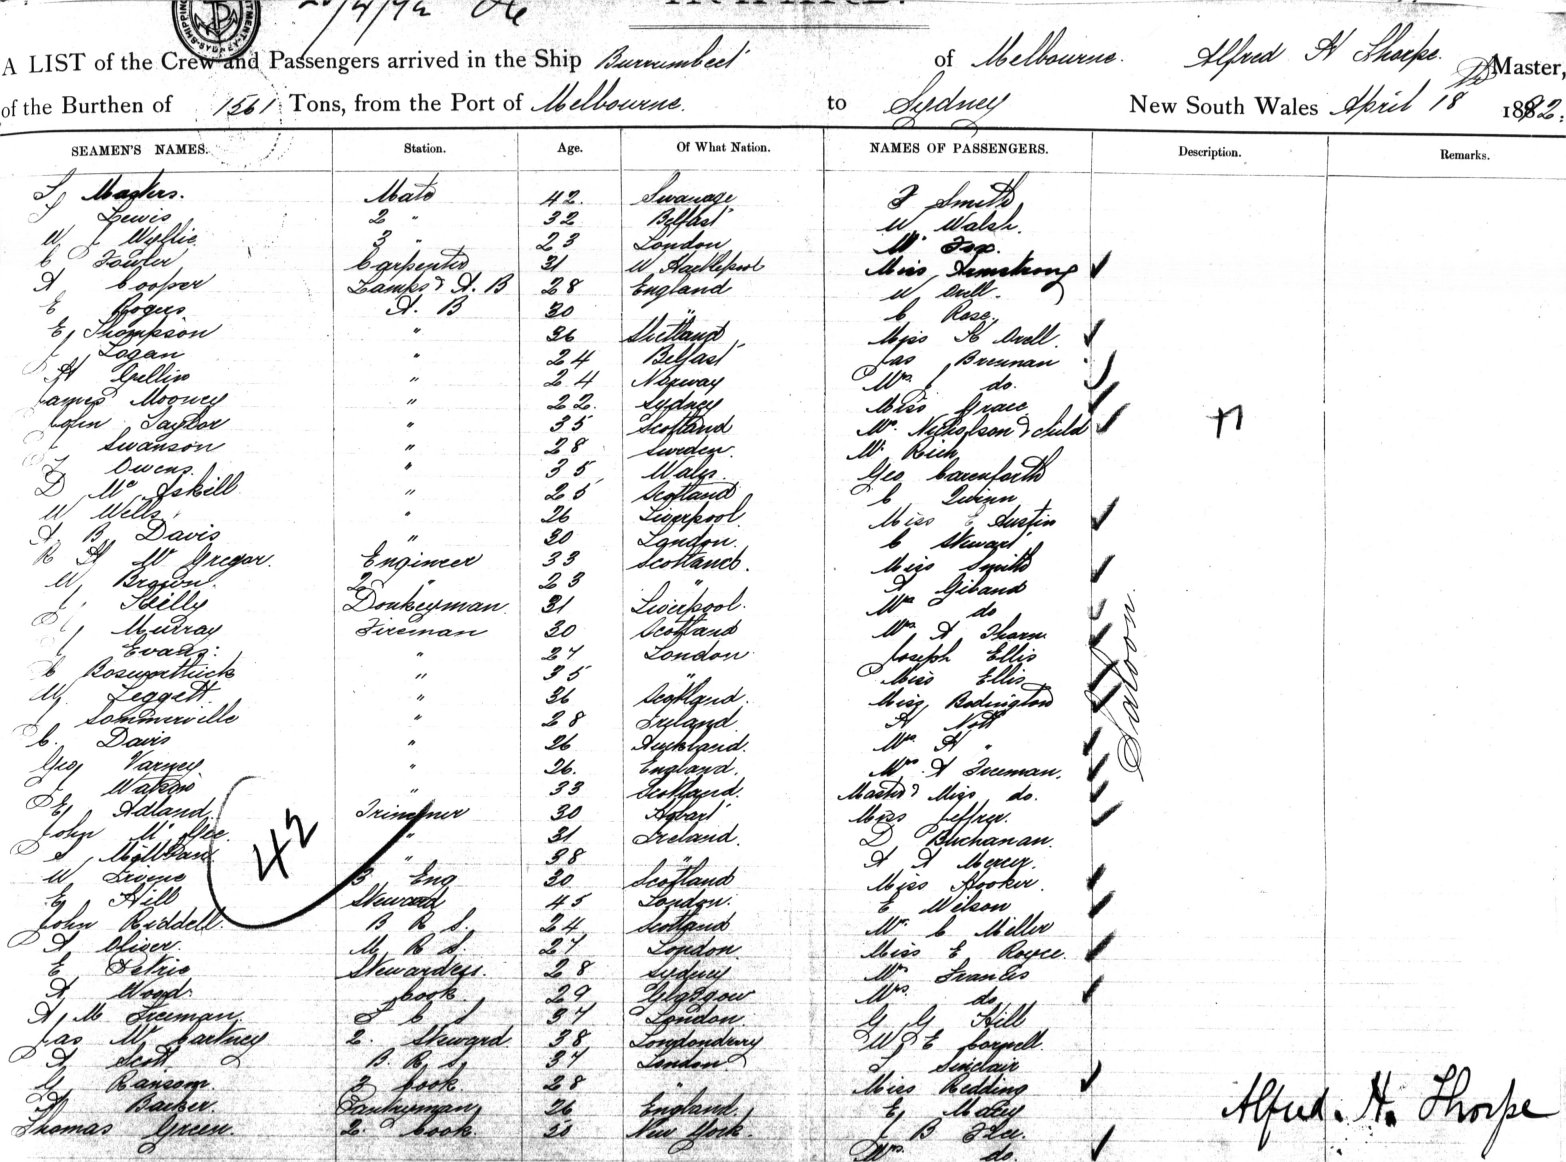 20/4/92
A LIST of the Crew and Passengers arrived in the Ship Burrumbeet of Melbourne. Alfred H Thorpe. Master,
of the Burthen of 1561 Tons, from the Port of Melbourne. to Sydney New South Wales April 18th 1892.
SEAMEN'S NAMES. Station. Age. Of What Nation. NAMES OF PASSENGERS. Description. Remarks.
Masters. Mate 42. Swanage Smith
Lewis 2 " 32 Belfast W Walsh.
W Wyllie 3 " 23 London Mr Fox.
C Fowler Carpenter 31 W Hartlepool Miss Armstrong
A Cooper Lamps & A. B 28 England W Orell.
E Rogers A. B 30 " C Rose.
E Thompson " 36 Shetland Miss Orell.
J Logan " 24 Belfast Jas Brennan
Gellin " 24 Norway Mrs do.
James Mooney " 22. Sydney Miss Grace
John Taylor " 35 Scotland Mrs Nicholson & child
J Swanson " 28 Sweden. Mr Rich
Owens " 35 Wales Geo Carenforth
D McAskill " 25 Scotland C Quinn
W Wells " 26 Liverpool Miss E Austin
A B Davis " 30 London. C Stewart
R McGregor. Engineer 33 Scotland. Miss Smith
W Brown 2 " 23 " Giband
J Skelly Donkeyman. 31 Liverpool. Mrs do
Murray Fireman 30 Scotland Mrs A Thorn
J Evans. " 27 London Joseph Ellis
C Bosworthick " 35 " Miss Ellis
W Leggett " 36 Scotland. Miss Bodington
J Sommerville " 28 Ireland. A Nott
C. Davis " 26 Auckland. Mrs A "
Geo Varney " 26. England. Mrs A Freeman.
J Watson " 33 Scotland. Master & Miss do.
E Adland. Trimmer 30 Hobart Miss Jeffrey
John McGee. " 31 Ireland. D Buchanan.
McMillan " 38 " A A Mercer.
W Irvine 3 Eng 30 Scotland Miss Hooker.
E Hill Steward 45 London. E Wilson
John Riddell. B R S. 24 Scotland Mr C Miller
A Oliver. M R S. 27 London. Miss E Royce.
E Petrie Stewardess. 28 Sydney Mr Francis
A Wood Cook. 29 Glasgow Mrs do
A M Freeman. S C S 37 London. G G Hill
Jas McCartney 2. Steward 38 Londonderry W E Cornell.
Scott B. R S 37 London Sinclair
G Ransom. 3 Cook. 28 " Miss Redding
Barker. Pantryman 26 England. E Matey
Thomas Green. 2. Cook. 30 New York. J B
Mrs do.
42
Saloon.
Alfred. H. Thorpe